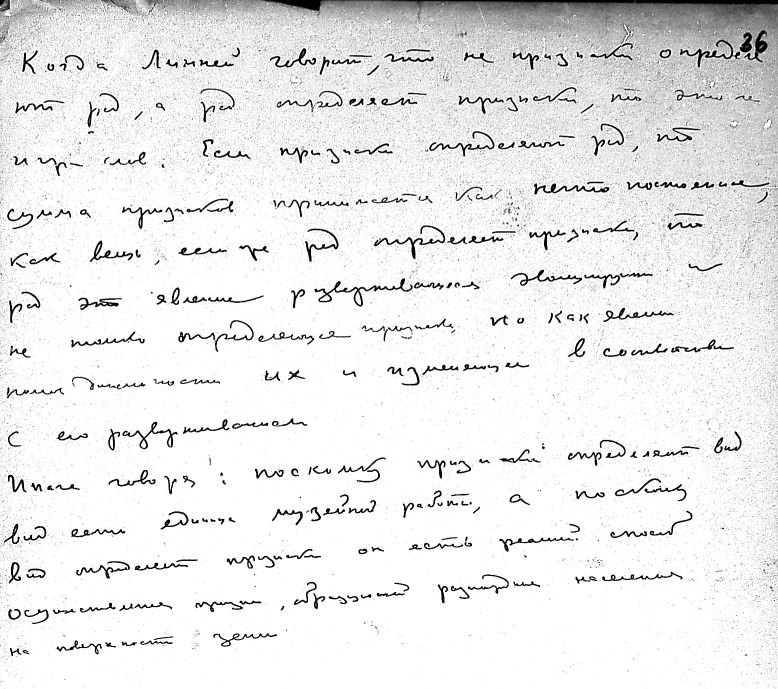 36
Когда Линней говорит, что не признаки определя
ют род, а род определяет признаки, то это не
игра слов. Если признаки определяют род, то
сумма признаков принимается как нечто постоянное,
как вещь, если же род определяет признаки, то
род это явление развертывающееся эволюцирующее и
не только определяющее признаки, но как явление
их и изменяющее в соответствии
с его развертыванием
Иначе говоря: поскольку признаки определяют вид
вид есть единица музейной работы, а поскольку
вид определяет признаки он есть реальный способ
осуществления жизни, образующий разнородные населения
на поверхности земли